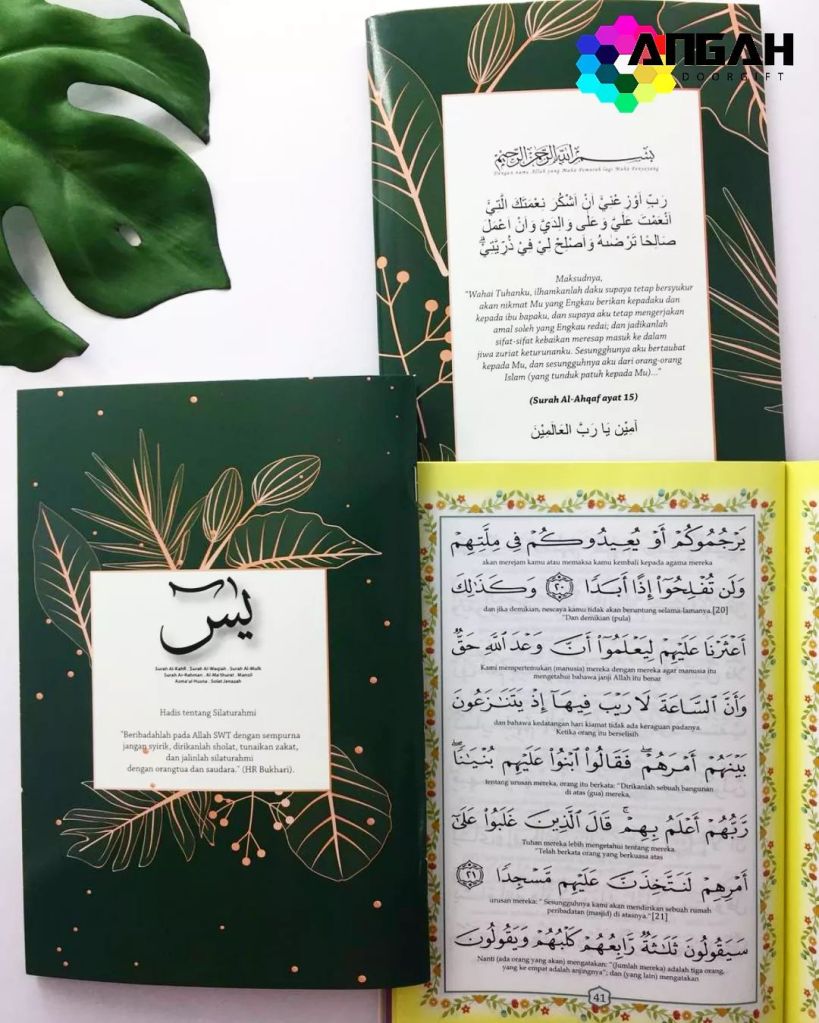 ANGAH
DOORGIFT
بسم الله الرحمن الرحيم
Dengan nama Allah yang Maha Pemurah lagi Maha Penyayang
رَبِّ أَوْزِعْنِيْٓ اَنْ اَشْكُرَ نِعْمَتَكَ الَّتِيْٓ
اَنْعَمْتَ عَلَيَّ وَعَلٰى وَالِدَيَّ وَاَنْ اَعْمَلَ
صَالِحًا تَرْضٰىهُ وَاَصْلِحْ لِيْ فِيْ ذُرِّيَّتِيْۗ
Maksudnya,
"Wahai Tuhanku, ilhamkanlah daku supaya tetap bersyukur
akan nikmat Mu yang Engkau berikan kepadaku dan
kepada ibu bapaku, dan supaya aku tetap mengerjakan
amal soleh yang Engkau redai; dan jadikanlah
sifat-sifat kebaikan meresap masuk ke dalam
jiwa zuriat keturunanku. Sesungghunya aku bertaubat
kepada Mu, dan sesungguhnya aku dari orang-orang
Islam (yang tunduk patuh kepada Mu)..."
(Surah Al-Ahqaf ayat 15)
اٰمِيْن يَا رَبَّ العَالَمِيْنَ
يس
Surah Al-Kahfi . Surah Al-Waqiah . Surah Al-Mulk
Surah Ar-Rahman . Al-Ma'thurat . Manzil
Asma'ul Husna . Solat Jenazah
Hadis tentang Silaturahmi
"Beribadahlah pada Allah SWT dengan sempurna
jangan syirik, dirikanlah sholat, tunaikan zakat,
dan jalinlah silaturahmi
dengan orangtua dan saudara." (HR Bukhari).
يَرْجُمُوكُمْ أَوْ يُعِيدُوكُمْ فِى مِلَّتِهِمْ
akan merejam kamu atau memaksa kamu kembali kepada agama mereka
وَلَن تُفْلِحُوٓا۟ إِذًا أَبَدًا ٢٠ وَكَذَٰلِكَ
dan jika demikian, nescaya kamu tidak akan beruntung selama-lamanya.[20]
"Dan demikian (pula)
أَعْثَرْنَا عَلَيْهِمْ لِيَعْلَمُوٓا۟ أَنَّ وَعْدَ ٱللَّهِ حَقٌّ
Kami mempertemukan (manusia) mereka dengan mereka agar manusia itu
mengetahui bahawa janji Allah itu benar
وَأَنَّ ٱلسَّاعَةَ لَا رَيْبَ فِيهَآ إِذْ يَتَنَٰزَعُونَ
dan bahawa kedatangan hari kiamat tidak ada keraguan padanya.
Ketika orang itu berselisih
بَيْنَهُمْ أَمْرَهُمْ ۖ فَقَالُوا۟ ٱبْنُوا۟ عَلَيْهِم بُنْيَٰنًا ۖ
tentang urusan mereka, orang itu berkata: "Dirikanlah sebuah bangunan
di atas (gua) mereka,
رَّبُّهُمْ أَعْلَمُ بِهِمْ ۚ قَالَ ٱلَّذِينَ غَلَبُوا۟ عَلَىٰٓ
Tuhan mereka lebih mengetahui tentang mereka.
"Telah berkata orang yang berkuasa atas
أَمْرِهِمْ لَنَتَّخِذَنَّ عَلَيْهِم مَّسْجِدًا ٢١
urusan mereka: " Sesungguhnya kami akan mendirikan sebuah rumah
peribadatan (masjid) di atasnya."[21]
سَيَقُولُونَ ثَلَٰثَةٌ رَّابِعُهُمْ كَلْبُهُمْ وَيَقُولُونَ
Nanti (ada orang yang akan) mengatakan: "(Jumlah mereka) adalah tiga orang,
yang ke empat adalah anjingnya"; dan (yang lain) mengatakan
41